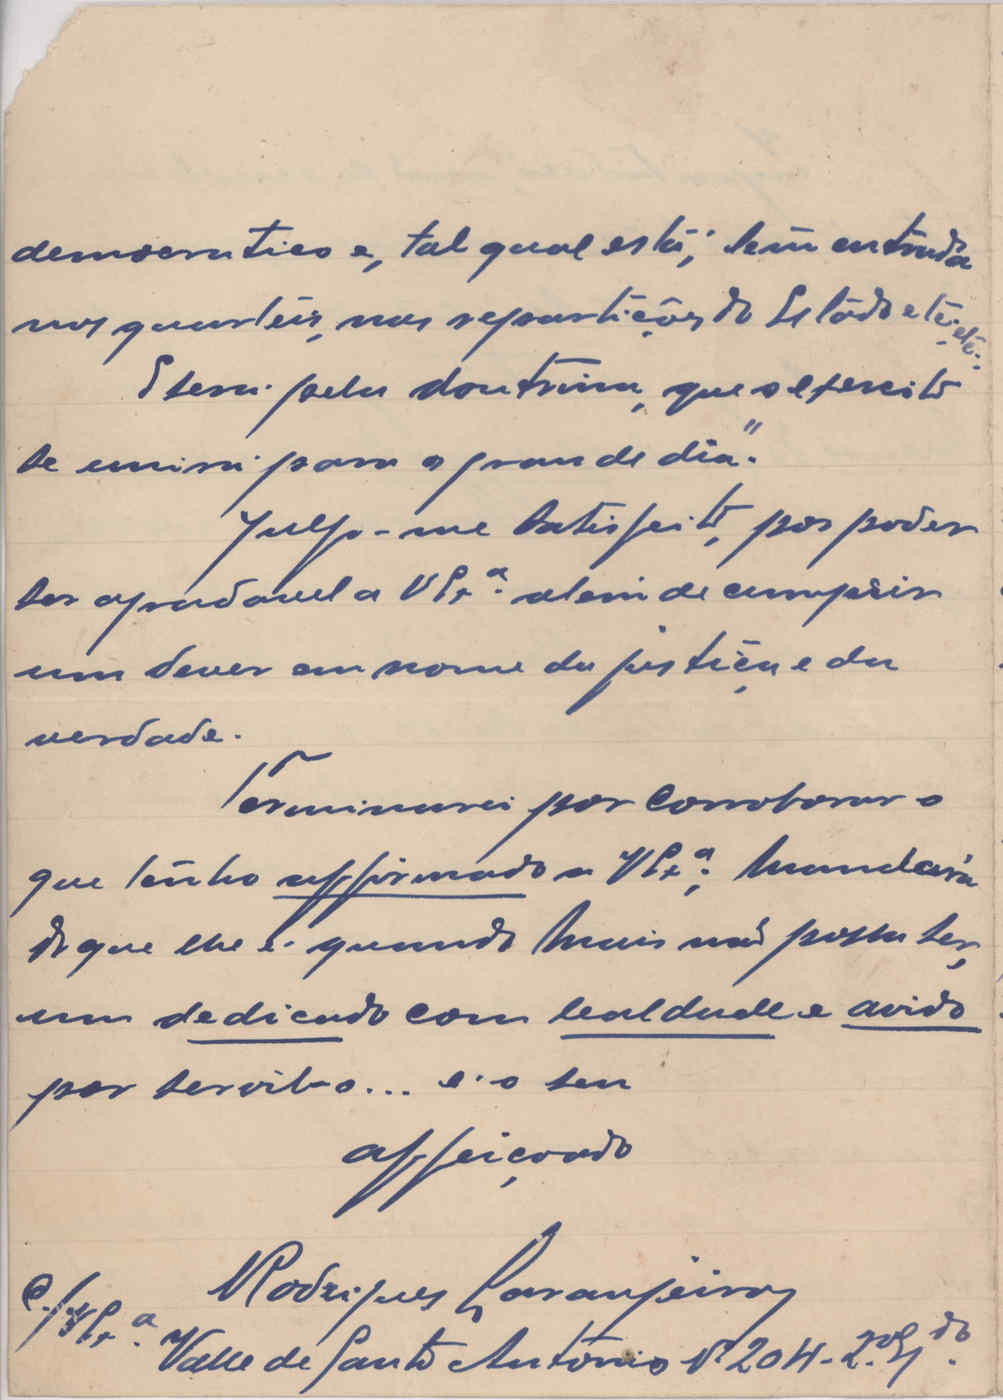 democratico e, tal qual está, tem entrada
nos quarteis, nas repartições do Estádo etc, etc.
E sera pela doutrina, que o exercito
se unira para o grande dia".
Julgo-me satisfeito, por poder
ser agradavel a V Ex.ª alem de cumprir
um dever em nome da justiça e da
verdade.
Terminarei por corroborar o
que tenho affirmado a V Ex.ª: Mandará
do que lhe é quando mais não possa ser,
um dedicado com lealdade e avido
por servil-o... e o seu
affeiçoado
Rodrigues Laranjeira
Valle de Santo Antonio Nº 204-2.º E